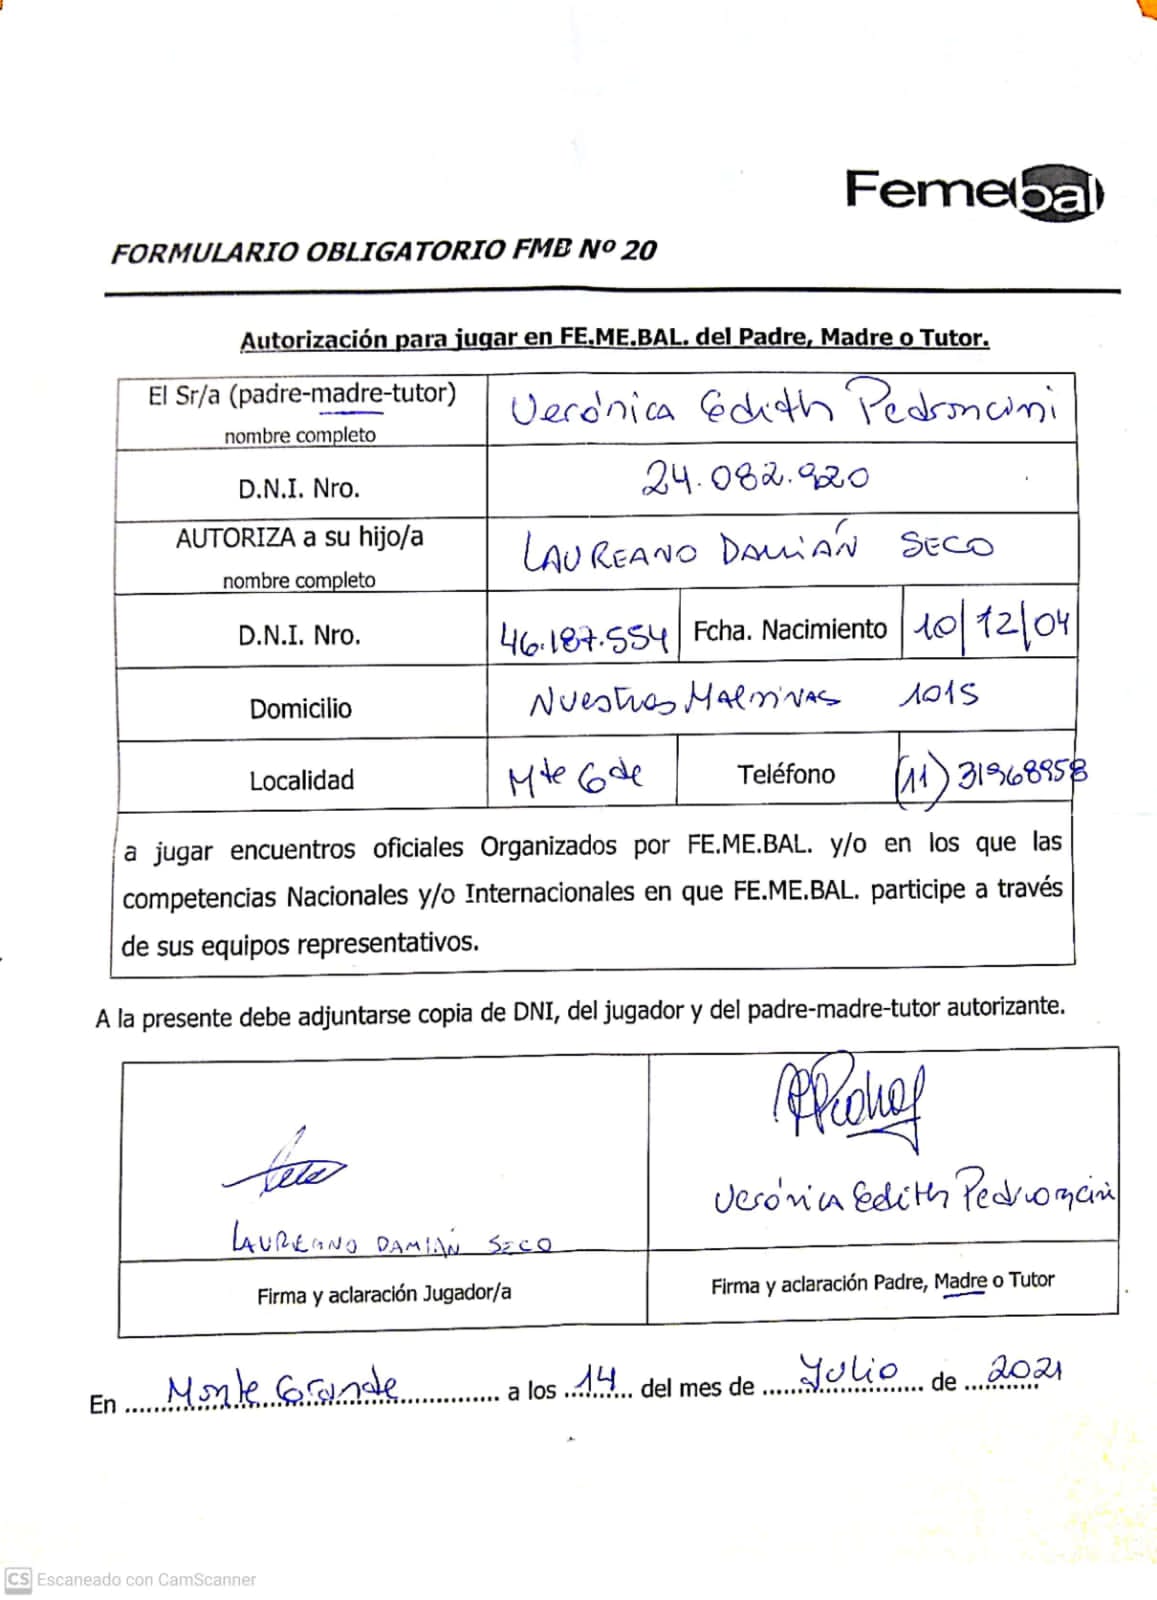 Femebal
FORMULARIO OBLIGATORIO FMB Nº 20
Autorización para jugar en FE.ME.BAL. del Padre, Madre o Tutor.
El Sr/a (padre-madre-tutor)
nombre completo
Verónica Edith Pedroncini
D.N.I. Nro.
24.082.920
AUTORIZA a su hijo/a
nombre completo
LAUREANO DAMIÁN SECO
D.N.I. Nro.
46.187.554
Fcha. Nacimiento
10/12/04
Domicilio
Nuestras Malvinas 1015
Localidad
Mte Gde
Teléfono
(11) 31968958
a jugar encuentros oficiales Organizados por FE.ME.BAL. y/o en los que las
competencias Nacionales y/o Internacionales en que FE.ME.BAL. participe a través
de sus equipos representativos.
A la presente debe adjuntarse copia de DNI, del jugador y del padre-madre-tutor autorizante.
LAUREANO DAMIÁN SECO
Verónica Edith Pedroncini
Firma y aclaración Jugador/a
Firma y aclaración Padre, Madre o Tutor
En Monte Grande a los 14 del mes de Julio de 2021
CS Escaneado con CamScanner